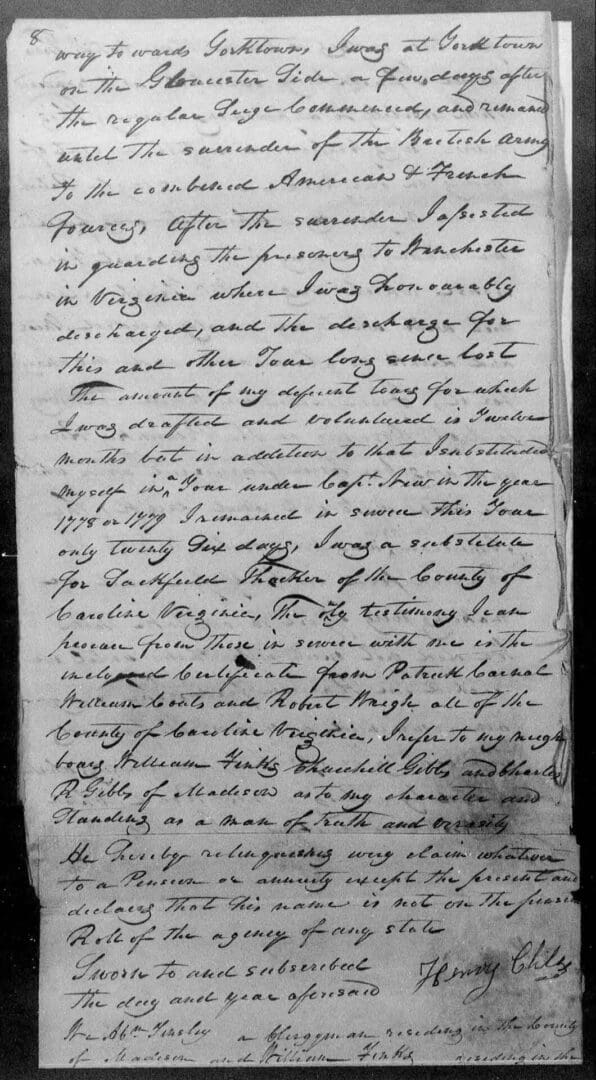 8
way towards Yorktown, I was at Yorktown
on the Gloucester Side a few days after
the regular Seige Commenced, and remained
untel the surrender of the British Army
to the combined American & French
Fources, After the surrender I assisted
in guarding the presoners to Wenchester
in Virginia where I was honourably
discharged, and the descharge for
this and other Tour long since lost
The amount of my deferent tours for which
I was drafted and volunteered is Twelve
months but in addition to that I substituded
myself in a Tour under Capt. New in the year
1778 or 1779 I remained in servce this Tour
only twenty Six days, I was a substitute
for Sackfield Thacker of the County of
Caroline Virginia, The only testimony I can
procure from those in servce with me is the
inclosed Certificate from Patrick Carnal
William Couts and Robert Wright all of the
County of Caroline Virginia, I refer to my neigh
bours William Finks Churchill Gibbs and Charles
R Gibbs of Madison as to my character and
Standing as a man of truth and veracity
He hereby relenquishes every claim whatever
to a Pension or annuity except the present and
declares that his name is not on the pension
Roll of the agency of any state
Sworn to and subscribed
the day and year aforesaid
Henry Chiles
We Abm Tinsley a Clergyman residing in the County
of Madison and William Finks residing in the